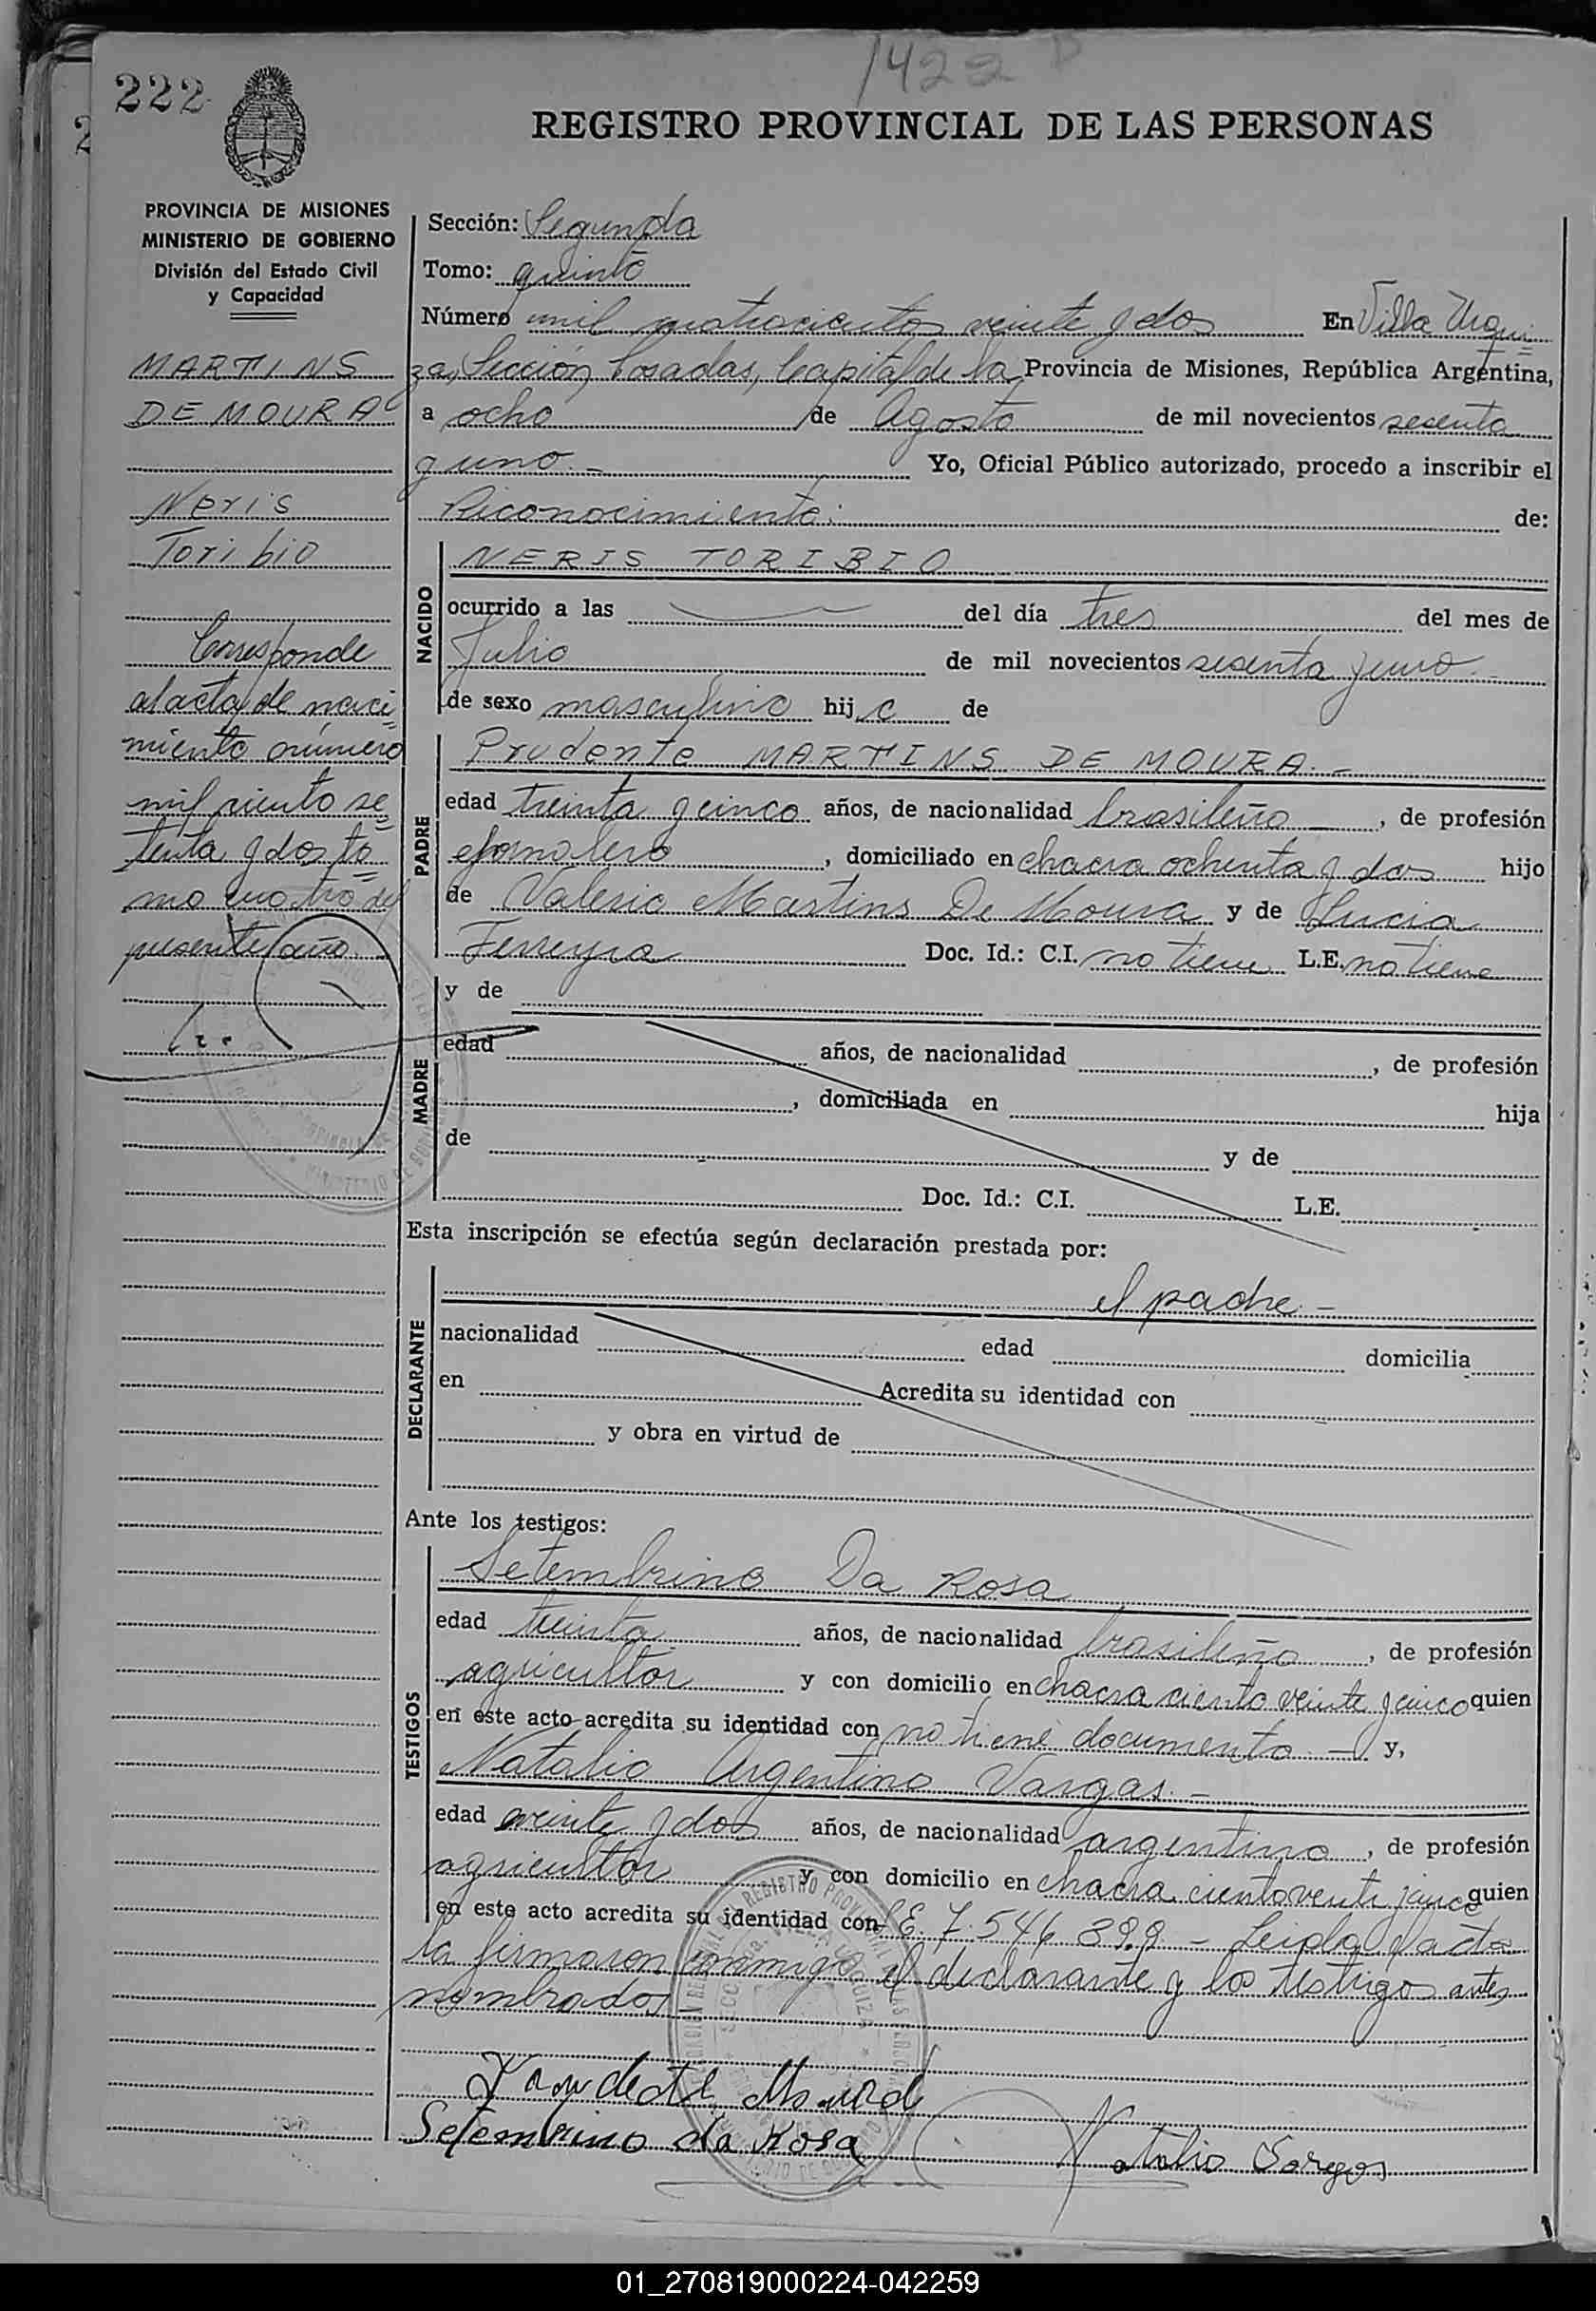 1422 D
222
REGISTRO PROVINCIAL DE LAS PERSONAS
PROVINCIA DE MISIONES
MINISTERIO DE GOBIERNO
División del Estado Civil
y Capacidad
MARTINS
DE MOURA
Neris
Toribio
Corresponde
al acta de naci
miento número
mil ciento se
tenta y dos to
mo cuatro del
presente año.
Sección: Segunda
Tomo: quinto
Número mil cuatrocientos veinte y dos En Villa Urqui
za, Sección Posadas, Capital de la Provincia de Misiones, República Argentina,
a ocho de Agosto de mil novecientos sesenta
y uno.- Yo, Oficial Público autorizado, procedo a inscribir el
Riconocimiento: de:
NACIDO
NERIS TORIBIO
ocurrido a las del día tres del mes de
Julio de mil novecientos sesenta y uno
de sexo masculino hijo de
PADRE
Prudente MARTINS DE MOURA.-
edad treinta y cinco años, de nacionalidad brasileño, de profesión
jornalero, domiciliado en chacra ochenta y dos hijo
de Valerio Martins De Moura y de Lucia
Ferreyra Doc. Id.: C.I. no tiene L.E. no tiene
MADRE
y de
edad años, de nacionalidad , de profesión
, domiciliada en hija
de y de
Doc. Id.: C.I. L.E.
Esta inscripción se efectúa según declaración prestada por:
DECLARANTE
el padre.-
nacionalidad edad domicilia
en Acredita su identidad con
y obra en virtud de
Ante los testigos:
TESTIGOS
Setembrino Da Rosa
edad treinta años, de nacionalidad brasileño, de profesión
agricultor y con domicilio en chacra ciento veinte y cinco quien
en este acto acredita su identidad con no tiene documento.- y,
Natalio Argentino Vargas.-
edad veinte y dos años, de nacionalidad argentino, de profesión
agricultor y con domicilio en chacra ciento veinte y cinco quien
en este acto acredita su identidad con L.E. 7.546.899 - Leida el acta
la firmaron conmigo el declarante y los testigos antes
nombrados
Moura
Setembrino da Rosa
Natalio Vargas
01_270819000224-042259